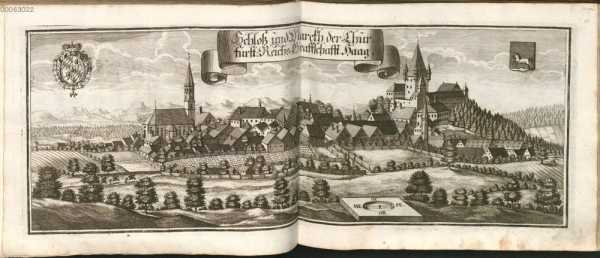 00063022
Schloß und Marckh der Chur
fürstl. Reichs Graffschafft Haag.